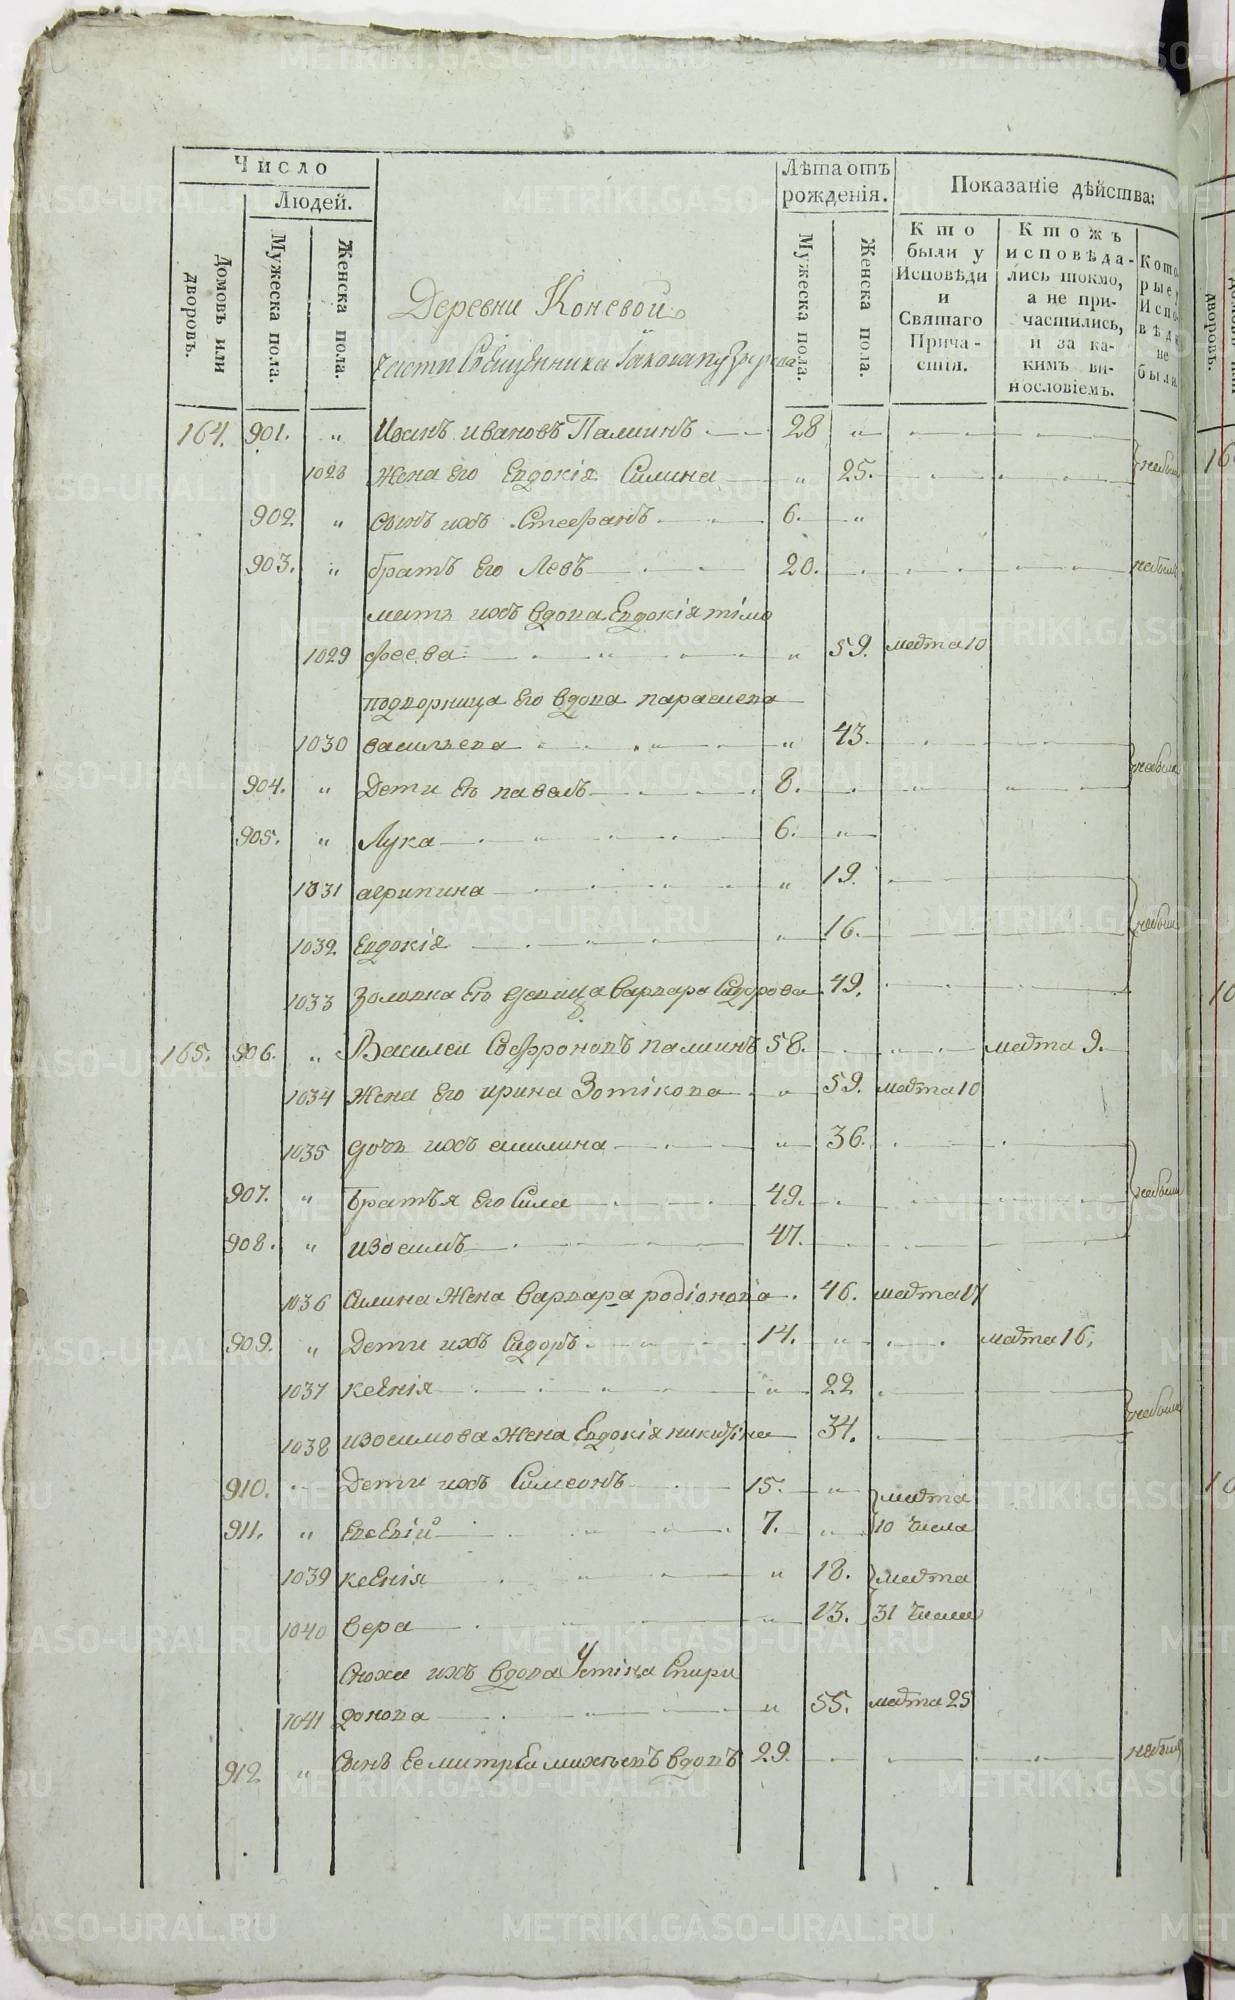 Число
Людей.
Домовъ или дворовъ.
Мужеска пола.
Женска пола.
Лѣта отъ рожденія.
Мужеска пола.
Женска пола.
Показаніе дѣйства:
Кто были у Исповѣди и Святаго Причастія.
Ктожъ исповѣдались токмо, а не причастились, и за какимъ винословіемъ.
Которые у Исповѣди не были
Деревни Коневой
части Священника Іакова
164. 901. " Иванъ ивановъ Палшинъ 28 "
1028 жена его Евдокія Силина " 25. небыли
902 " сынъ ихъ Стефанъ 6. "
903. " братъ его Левъ 20. небылъ
мать ихъ вдова Евдокія тімо
1029 феева " 59. марта 10
подворница его вдова параскева
1030 васильева " 43. небыли
904. " Дети ея павелъ 8.
905. " Лука 6. "
1031 агрипина " 19.
1032 Евдокія " 16. небыли
1033 золовка Ея девица варвара Сидорова 49.
165. 906. " Василеи Софроновъ палшинъ 58. марта 9.
1034 жена его ирина Зотікова " 59. марта 10
1035 дочь ихъ акилина " 36.
907. " братья его Сила 49. небыли
908. " изосимъ 47.
1036 силина жена варвара родіонова 46. марта 17
909. " Дети ихъ Сидоръ 14. " марта 16.
1037 ксенія " 22
1038 изосимова жена Евдокія никифорова 34. небыли
910. Дети ихъ Симеонъ 15. " марта
911. " Евсевій 7. " 10 числа
1039 ксенія " 18. марта
1040 вера " 13. 31 числа
Сноха ихъ вдова Устінья Спири
1041 донова " 55. марта 25
912 " Сынъ ее митрей михеевъ вдовъ 29. небылъ
METRIKI.GASO-URAL.RU